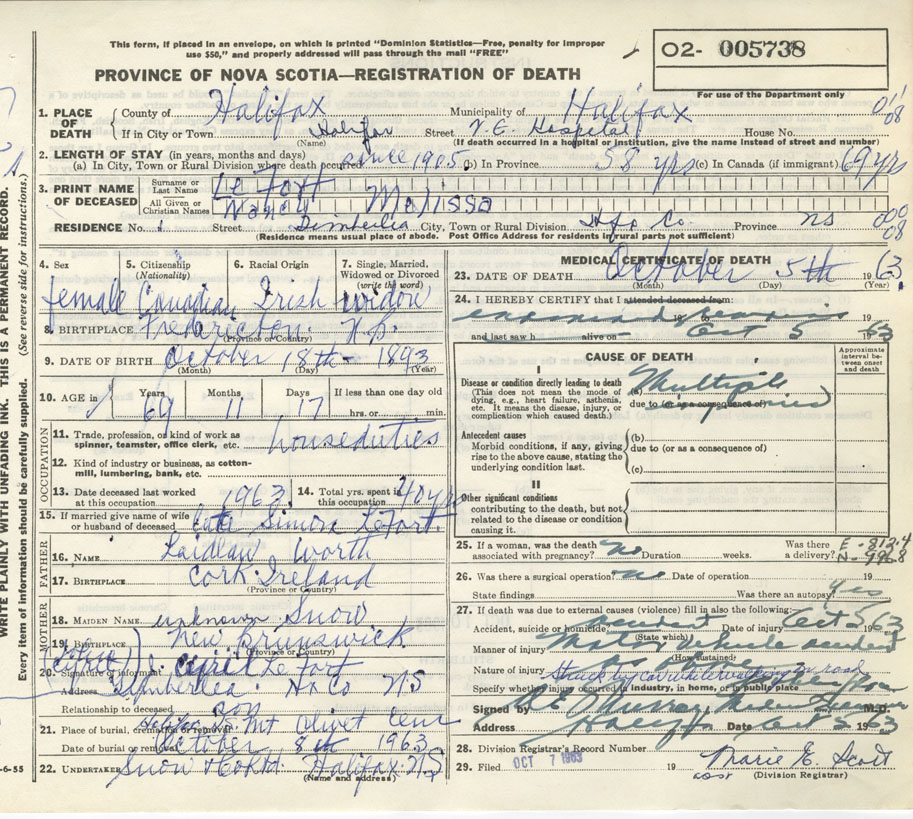 This form, if placed in an envelope, on which is printed "Dominion Statistics—Free, penalty for improper
use $50," and properly addressed will pass through the mail "FREE"
PROVINCE OF NOVA SCOTIA—REGISTRATION OF DEATH
O2- 005738
For use of the Department only
1. PLACE OF DEATH County of Halifax Municipality of Halifax
If in City or Town Halifax (Name) Street V.E. Hospital House No.
(If death occurred in a hospital or institution, give the name instead of street and number)
2. LENGTH OF STAY (in years, months and days)
(a) In City, Town or Rural Division where death occurred since 1905 (b) In Province 58 yrs (c) In Canada (if immigrant) 69 yrs
3. PRINT NAME OF DECEASED Surname or Last Name Le Fort
All Given or Christian Names Nancy Melissa
RESIDENCE No. Street Timberlea City, Town or Rural Division Hfx Co. Province NS
(Residence means usual place of abode. Post Office Address for residents in rural parts not sufficient)
WRITE PLAINLY WITH UNFADING INK. THIS IS A PERMANENT RECORD.
Every item of information should be carefully supplied. (See reverse side for instructions.)
4. Sex female
5. Citizenship (Nationality) Canadian
6. Racial Origin Irish
7. Single, Married, Widowed or Divorced (write the word) Widow
8. BIRTHPLACE Fredericton N.B. (Province or Country)
9. DATE OF BIRTH October 18th 1893
(Month) (Day) (Year)
10. AGE in Years 69 Months 11 Days 17 If less than one day old hrs. or min.
OCCUPATION
11. Trade, profession, or kind of work as spinner, teamster, office clerk, etc. houseduties
12. Kind of industry or business, as cotton-mill, lumbering, bank, etc.
13. Date deceased last worked at this occupation 1963
14. Total yrs. spent in this occupation 40 yrs
15. If married give name of wife or husband of deceased late Simon LeFort
FATHER
16. NAME Laidlaw Worth
17. BIRTHPLACE Cork Ireland
(Province or Country)
MOTHER
18. MAIDEN NAME unknown Snow
19. BIRTHPLACE New Brunswick
(Province or Country)
20. Signature of informant Cyril Le Fort
Address Timberlea Hx Co NS
Relationship to deceased son
21. Place of burial, cremation or removal Halifax NS Mt Olivet Cem
Date of burial or removal October 8th 1963
22. UNDERTAKER Snow & Co Ltd. Halifax NS
(Name and address)
-6-55
MEDICAL CERTIFICATE OF DEATH
23. DATE OF DEATH October 5th 1963
(Month) (Day) (Year)
24. I HEREBY CERTIFY that I attended deceased from:
19 to 19
and last saw h alive on Oct 5 63
CAUSE OF DEATH
Approximate interval between onset and death
I
Disease or condition directly leading to death
(This does not mean the mode of dying, e.g., heart failure, asthenia, etc. It means the disease, injury, or complication which caused death.)
(a) Multiple injuries
due to (or as a consequence of)
Antecedent causes
Morbid conditions, if any, giving rise to the above cause, stating the underlying condition last.
(b)
due to (or as a consequence of)
(c)
II
Other significant conditions
contributing to the death, but not related to the disease or condition causing it.
25. If a woman, was the death associated with pregnancy? no Duration weeks. Was there a delivery?
E - 812.4
N - 996.8
26. Was there a surgical operation? no Date of operation 19
State findings Was there an autopsy? Yes
27. If death was due to external causes (violence) fill in also the following:
Accident, suicide or homicide? accident Date of injury Oct 5 1963
(State which)
Manner of injury Motor vehicle accident
(How sustained)
Nature of injury Struck by car while walking on road
Specify whether injury occurred in industry, in home, or in public place
Signed by Murray Medical Examiner M.D.
Address Halifax Date Oct 5 1963
28. Division Registrar's Record Number
29. Filed OCT 7 1963 19 Marie E Scott
(Division Registrar)